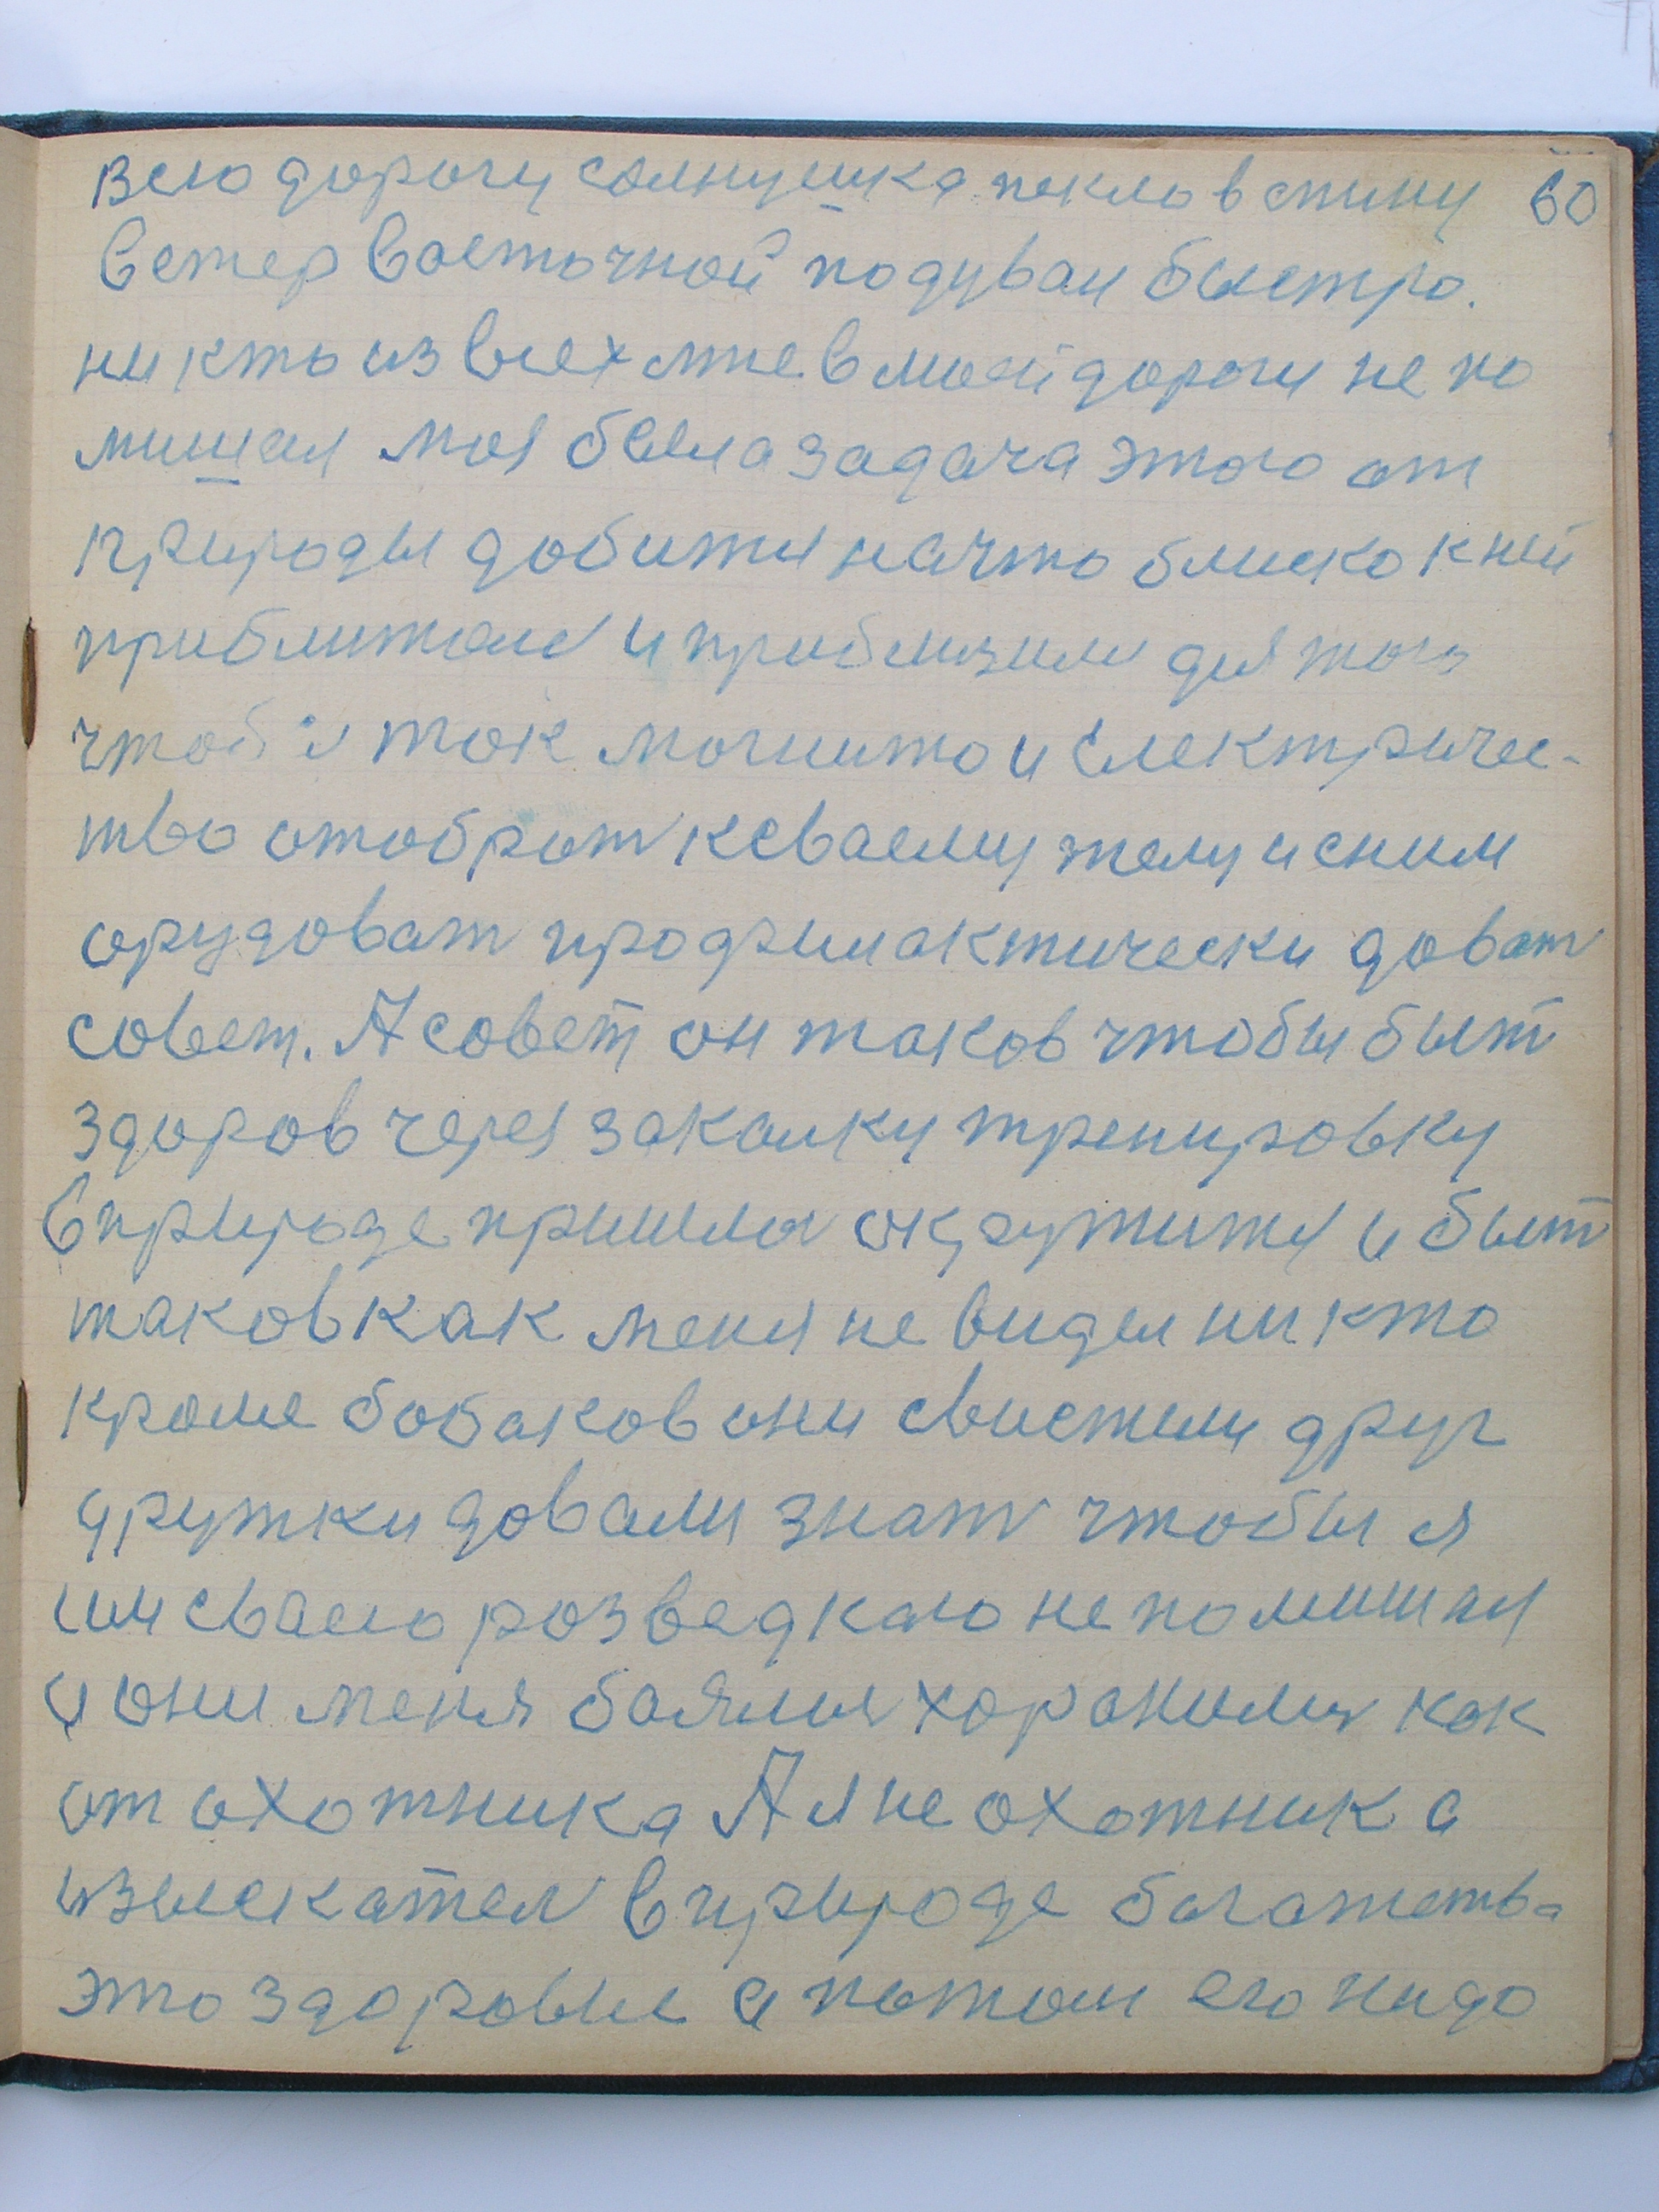 всю дорогу солнушка пекло в спину 60
ветер восточной подувал быстро.
ни кто из всех мне в моей дороги не по
мишал моя была задача этого от
природы добится начто блиско к ней
приближался и приблизился для того
чтобы ток магнито и електричес-
тво отобрат к сваему телу и с ним
орудоват профилактически доват
совет. А совет он таков чтобы быт
здоров через закалку тренировку
в природе пришлос окружится и быт
таков как меня не видел ни кто
кроме бобаков они свистели друг
дружки довали знат чтобы я
им сваею розведкаю не помишал
а они меня боялися хоронилис как
от охотника А я не охотник а
изыскател в природе богатства
это здоровие а потом его надо